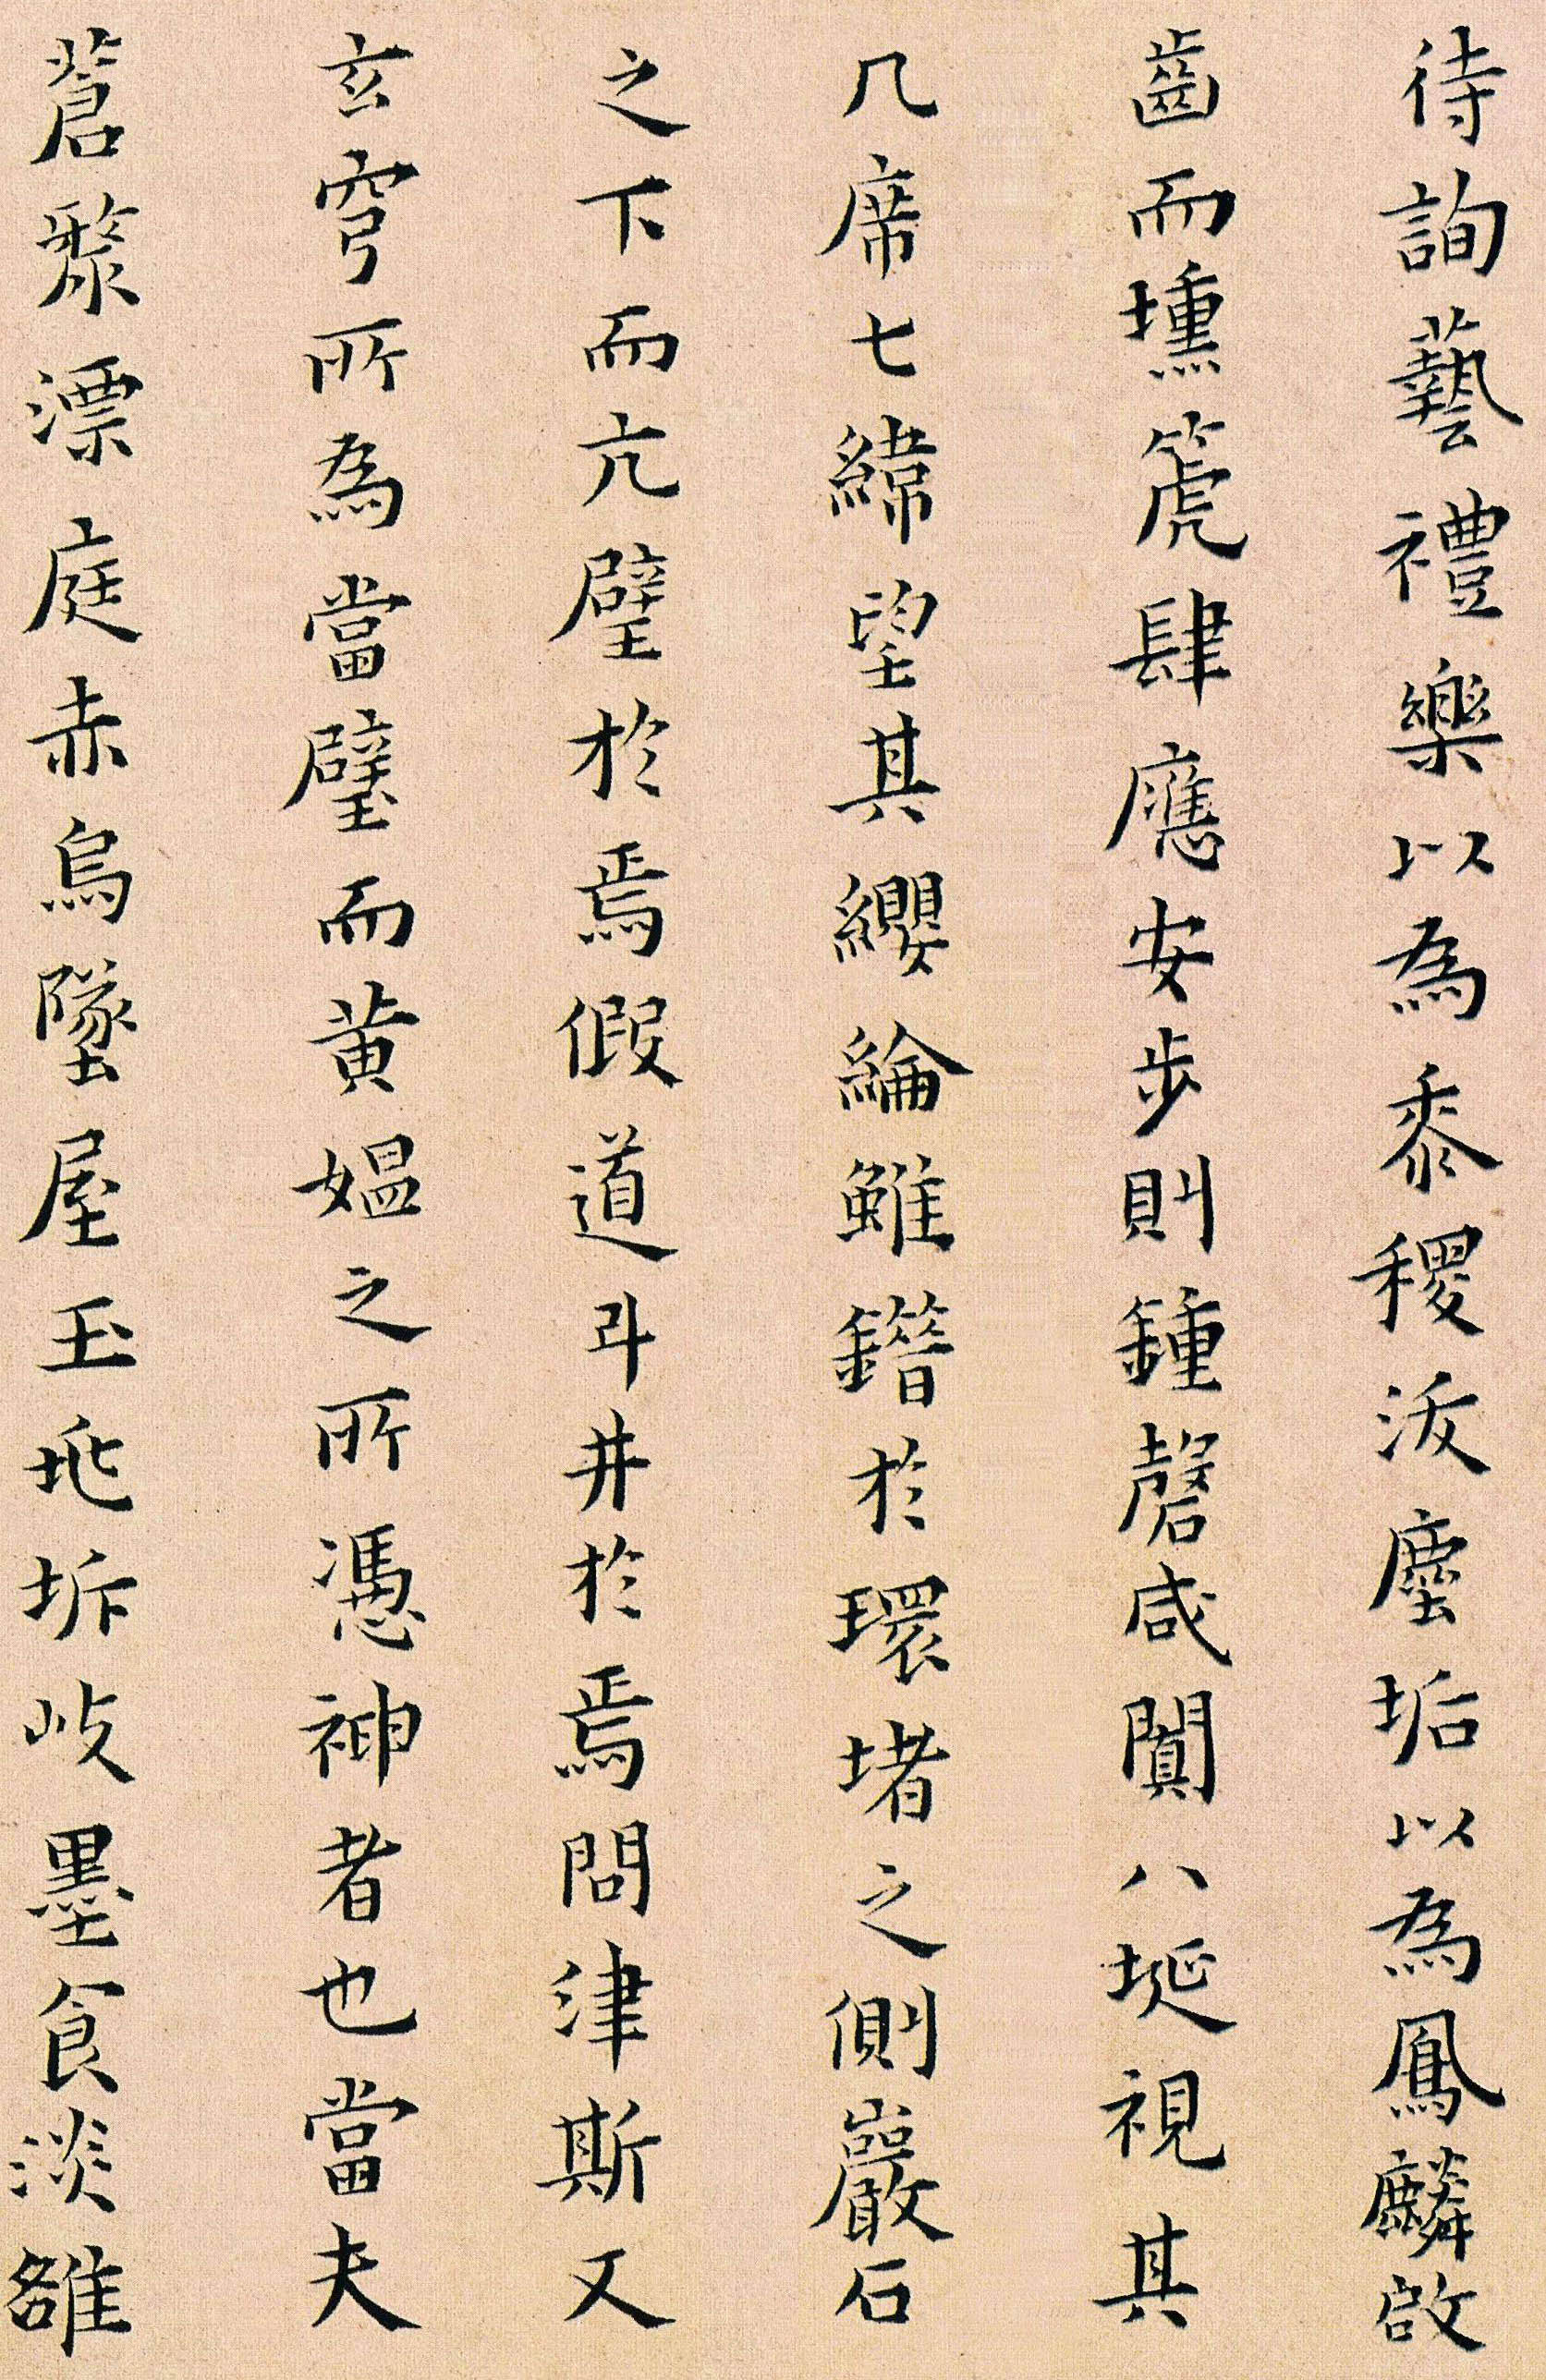 待詢藝禮樂以為黍稷泼塵垢以為鳳麟啟
齒而壎篪肆應安步則鍾磬咸闐八埏視其
几席七緯望其纓綸雖鐕於環堵之側巖石
之下而亢壁於焉假道斗井於焉問津斯又
玄穹所為當璧而黃媼之所憑神者也當夫
蒼聚漂庭赤烏墜屋玉兆坼岐墨食淡雒